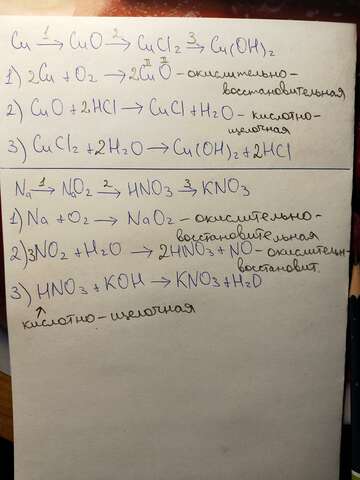 Cu 1→ CuO 2→ CuCl2 3→ Cu(OH)2
1) 2Cu + O2 → 2CuO - окислительно-
II II
восстановительная
2) CuO + 2HCl → CuCl + H2O - кислотно-
щелочная
3) CuCl2 + 2H2O → Cu(OH)2 + 2HCl
Na 1→ NO2 2→ HNO3 3→ KNO3
1) Na + O2 → NaO2 - окислительно-
восстановительная
2) 3NO2 + H2O → 2HNO3 + NO - окислительн-
восстановит.
3) HNO3 + KOH → KNO3 + H2O
↑
кислотно-щелочная